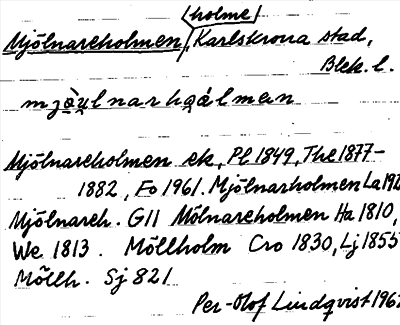 (holme)
Mjölnareholmen, Karlskrona stad,
Blek. l.
mjò̰ylnarhǫálman
Mjölnareholmen ek, Pl 1849, The 1877-
1882, Eo 1961. Mjölnarholmen La 192
Mjölnareh. G11 Mölnareholmen Ha 1810,
We 1813. Möllholm Cro 1830, Lj 1855
Möllh. Sj 821
Per-Olof Lindqvist 196